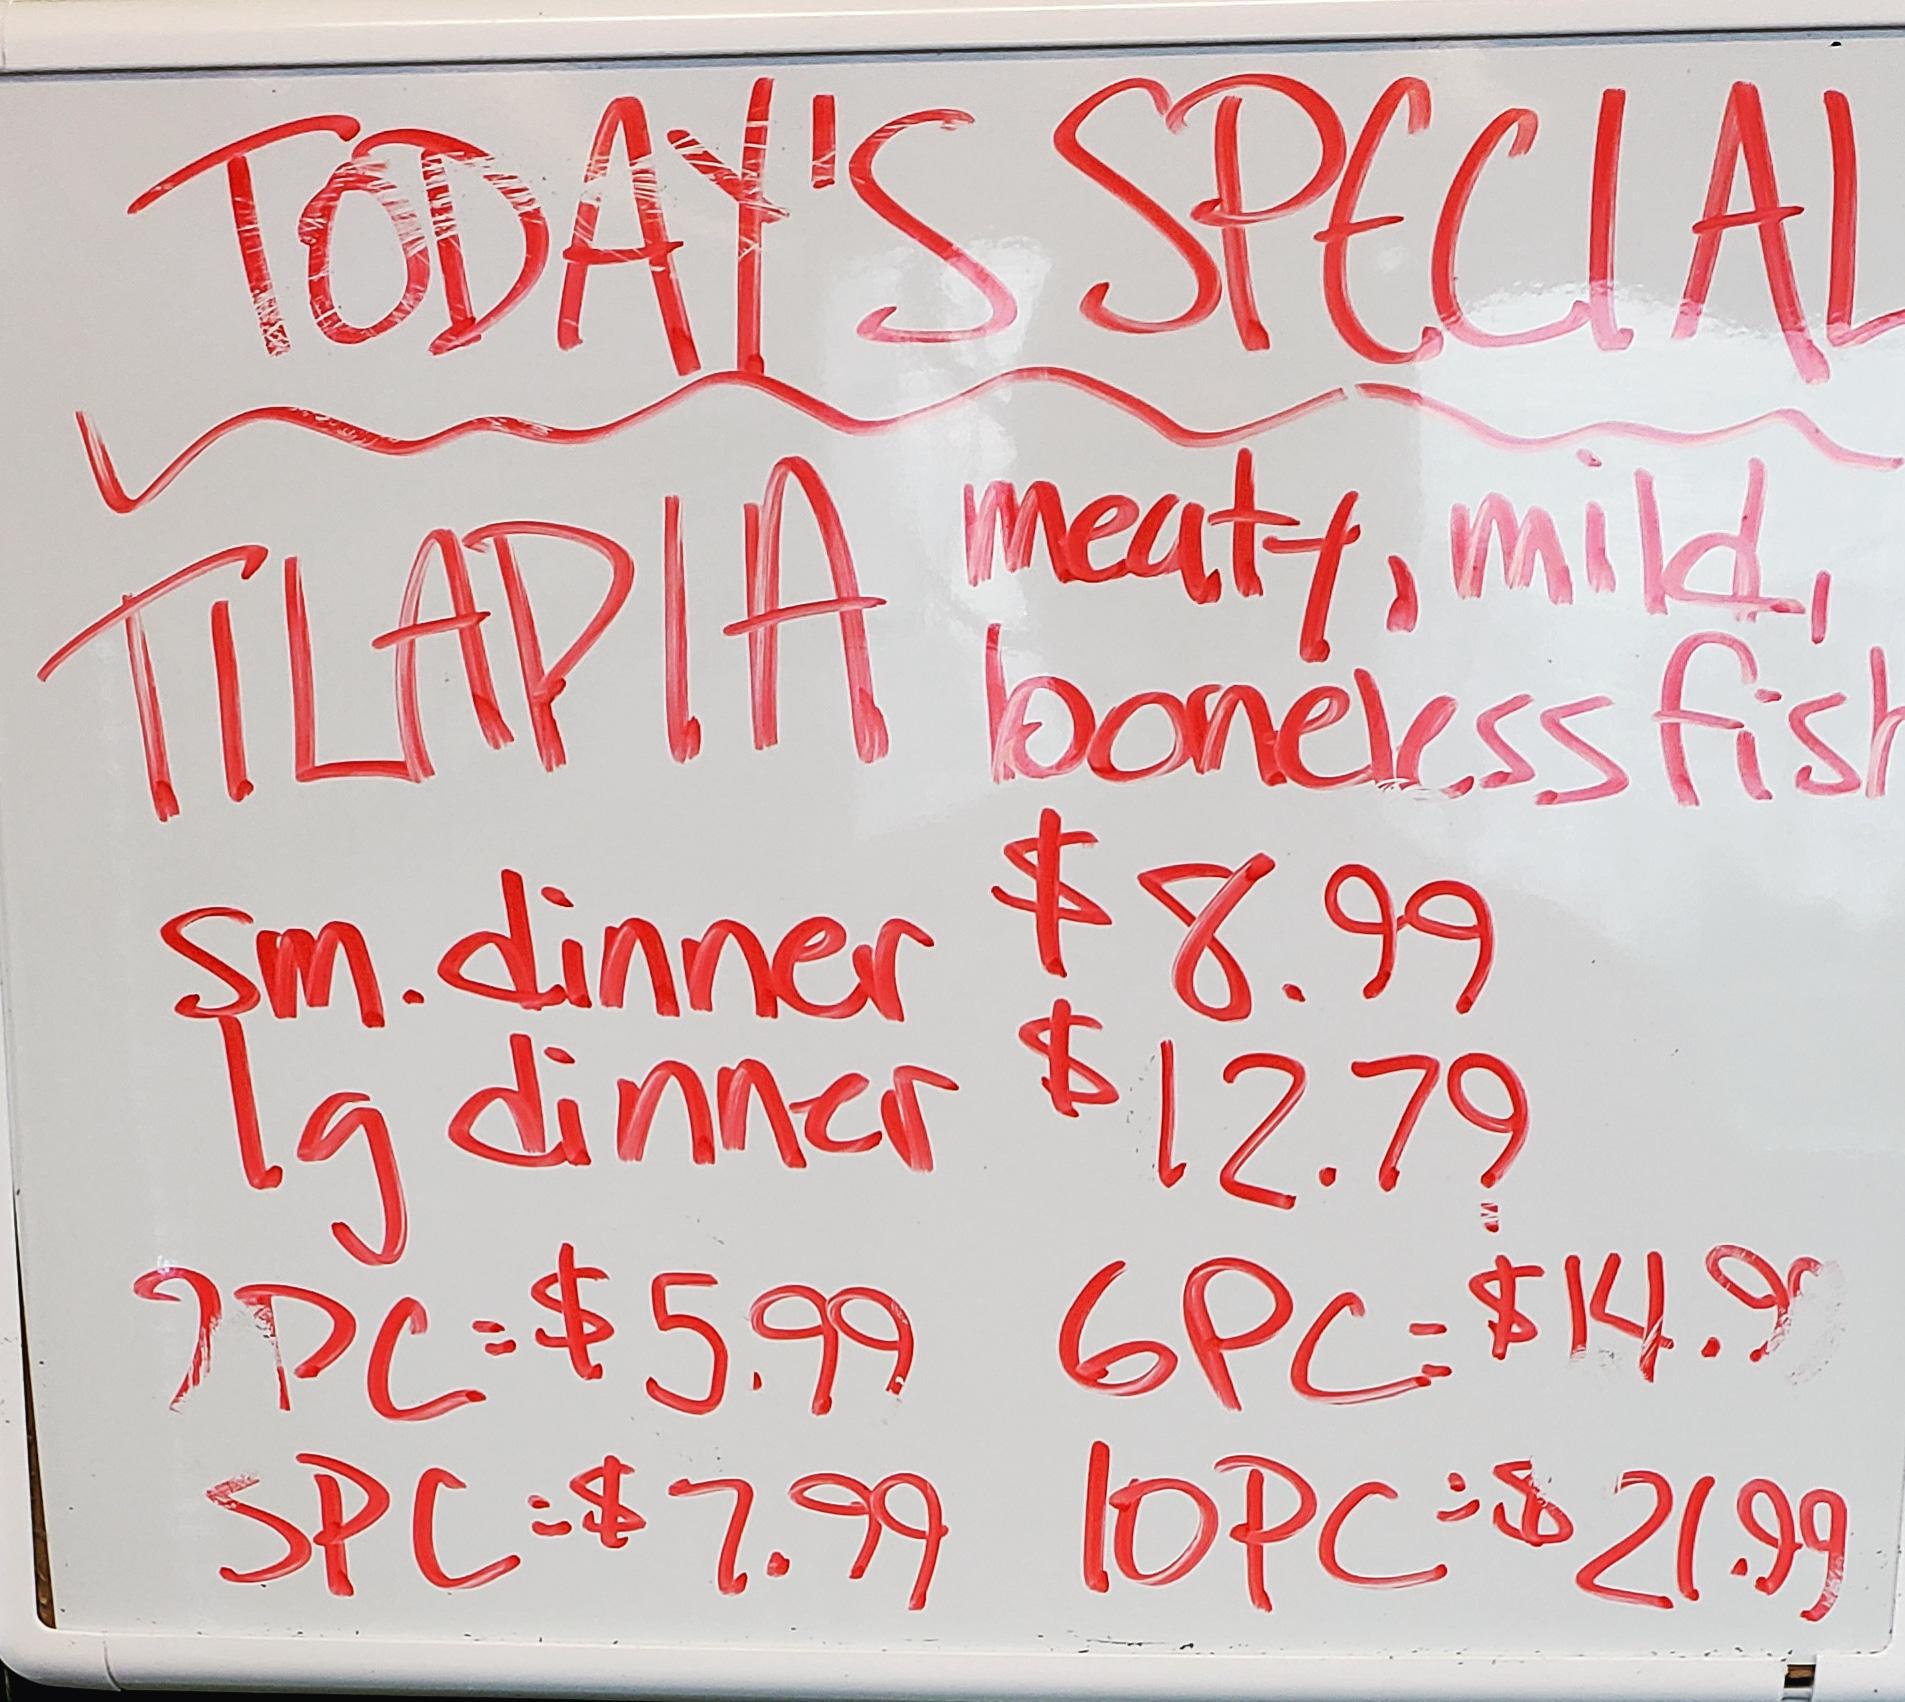 TODAY'S SPECIAL
TILAPIA meaty, mild,
boneless fish
sm. dinner $8.99
lg dinner $12.79
2PC = $5.99 6PC = $14.99
5PC = $7.99 10PC = $21.99